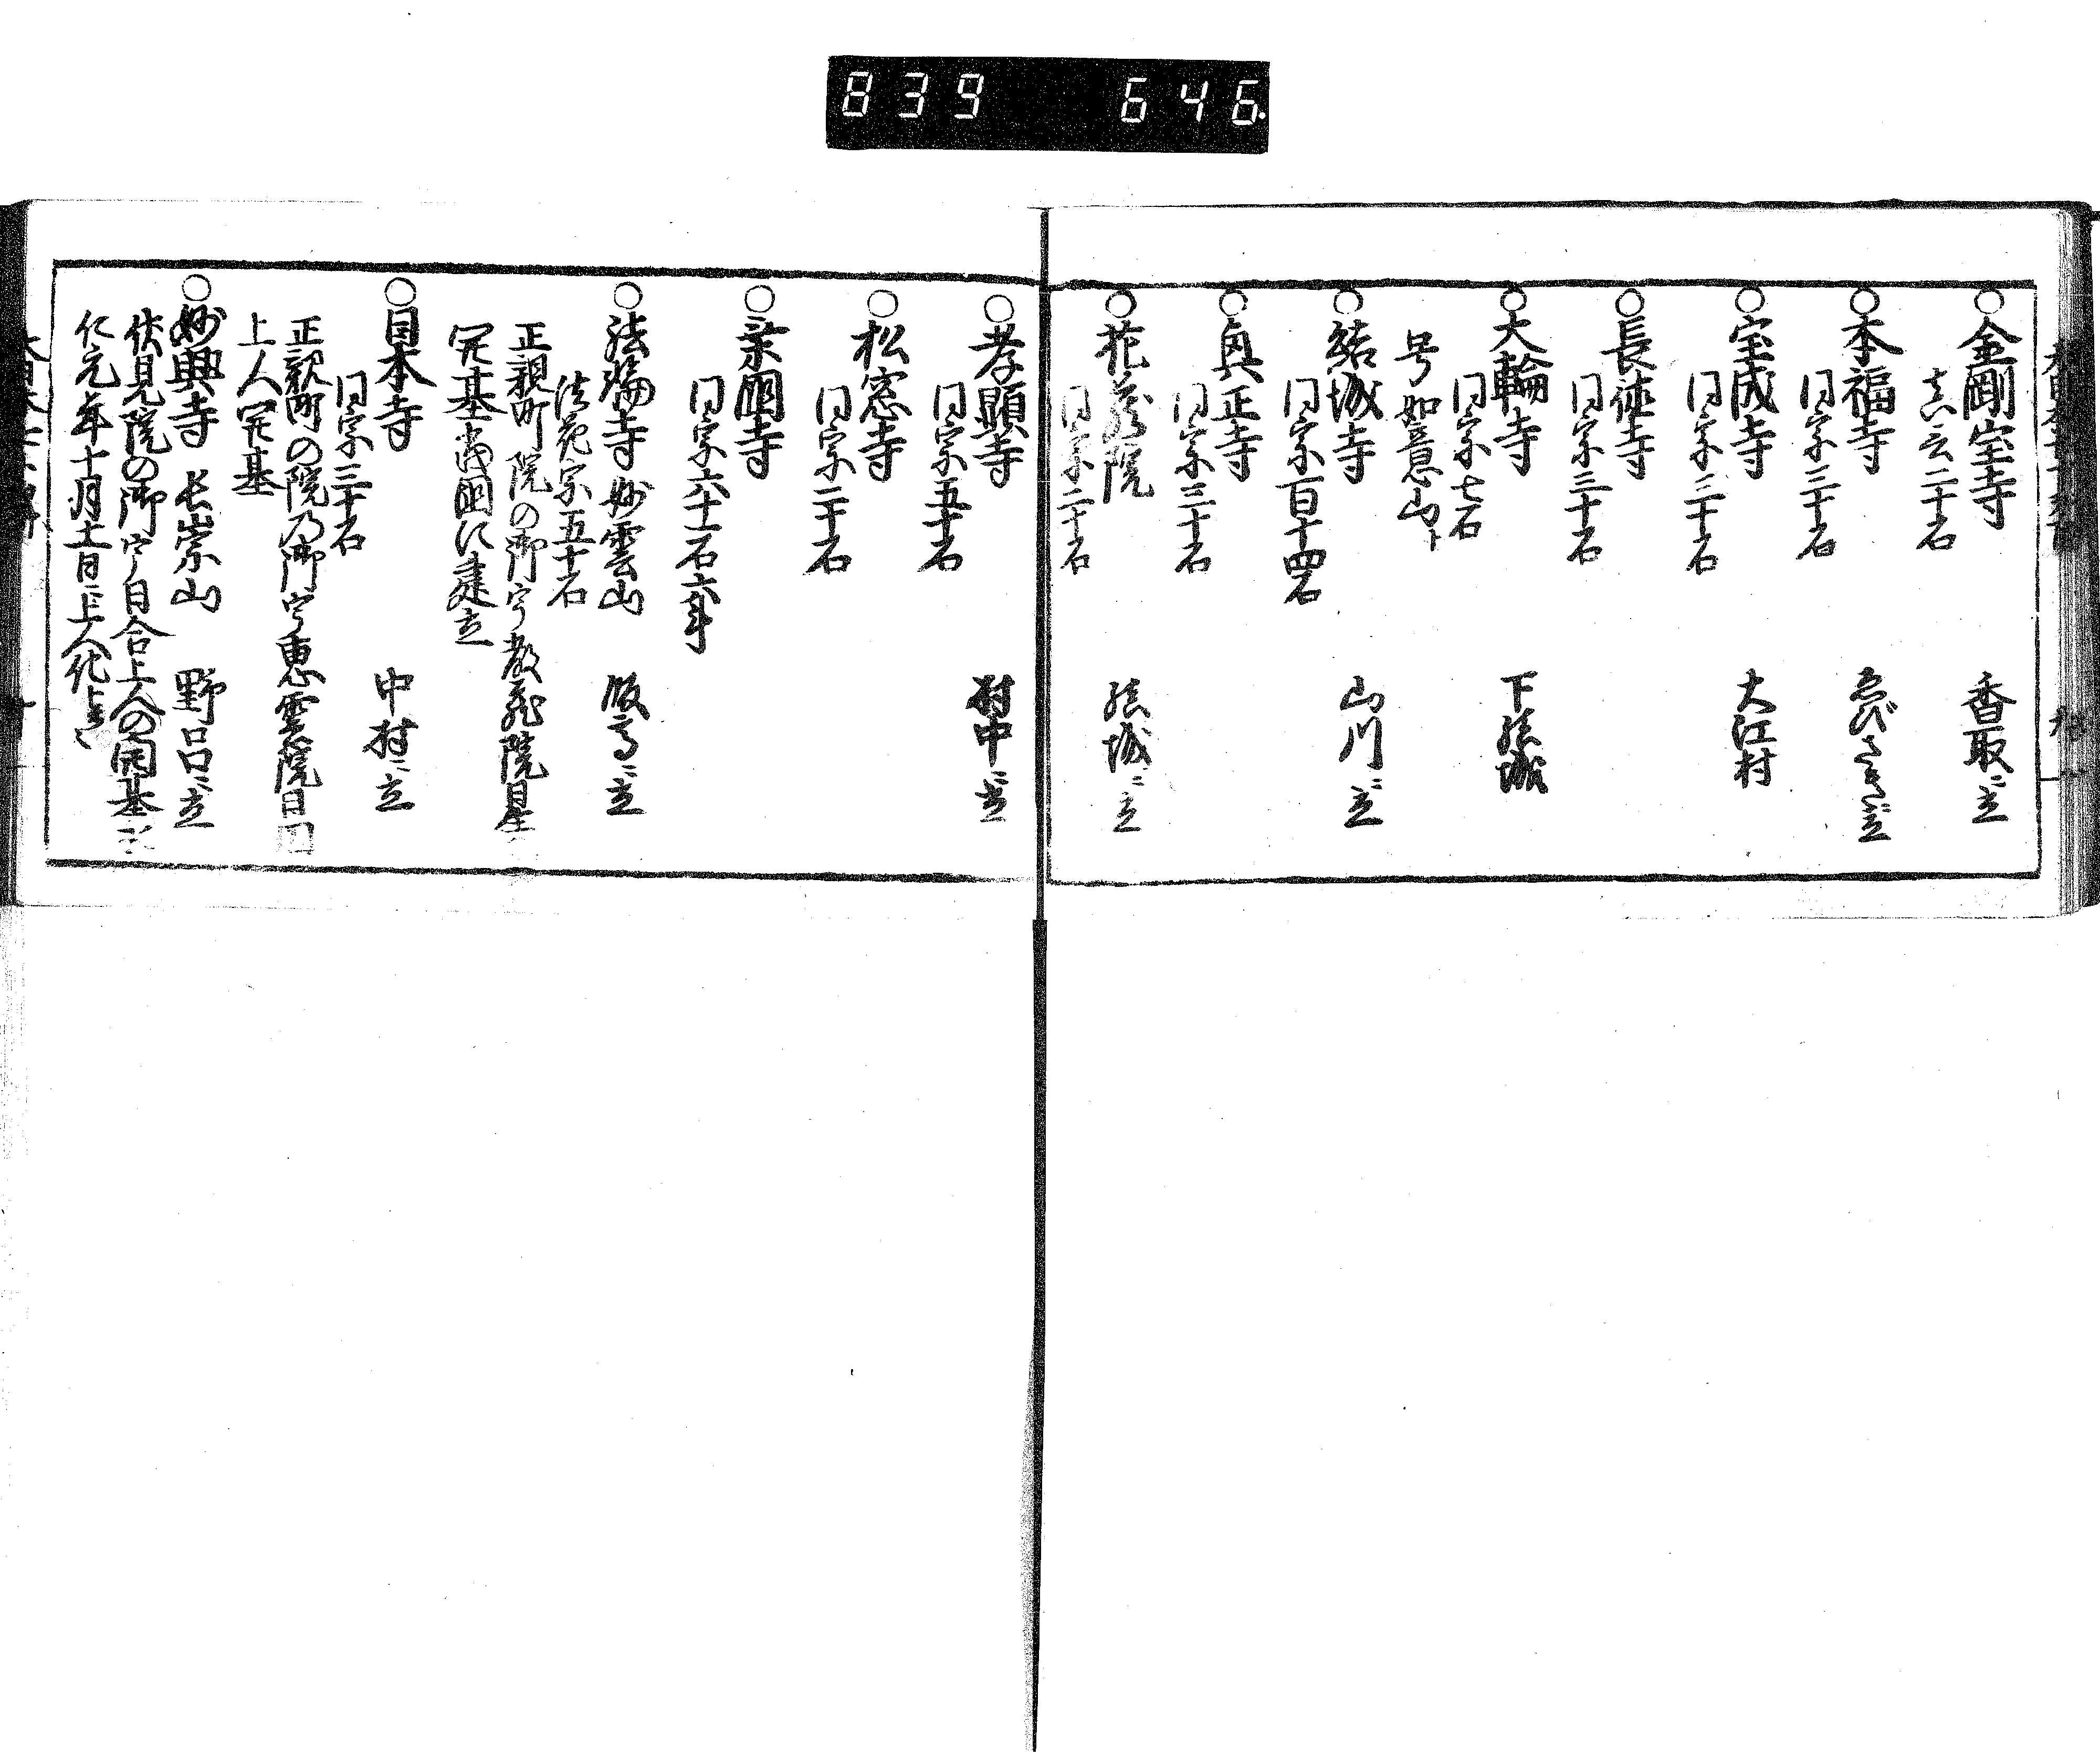 839 646
○金剛宝寺 香取ニ立
真言二十石
○本福寺 ゑびさきニ立
同宗三十石
○宝成寺 大江村
同宗二十石
○長徳寺
同宗三十石
○大輪寺 下結城
同宗七石
号如意山ト
○結城寺 山川ニ立
同宗百十四石
○真正寺
同宗三十石
○花蔵院 結城ニ立
同宗二十石
○孝顕寺 村中ニ立
同宗五十石
○松窓寺
同宗二十石
○
同宗六十二石六斗
○法輪寺 妙雲山 飯高ニ立
法花宗五十石
正親町院の御宇教蔵院日生
開基当国に建立
○日本寺 中村ニ立
同宗三十石
正親町の院乃御宇恵雲院日円
上人開基
○妙興寺 長崇山 野呂ニ立
伏見院の御宇日合上人の開基
仁元年十月十二日ニ上人化